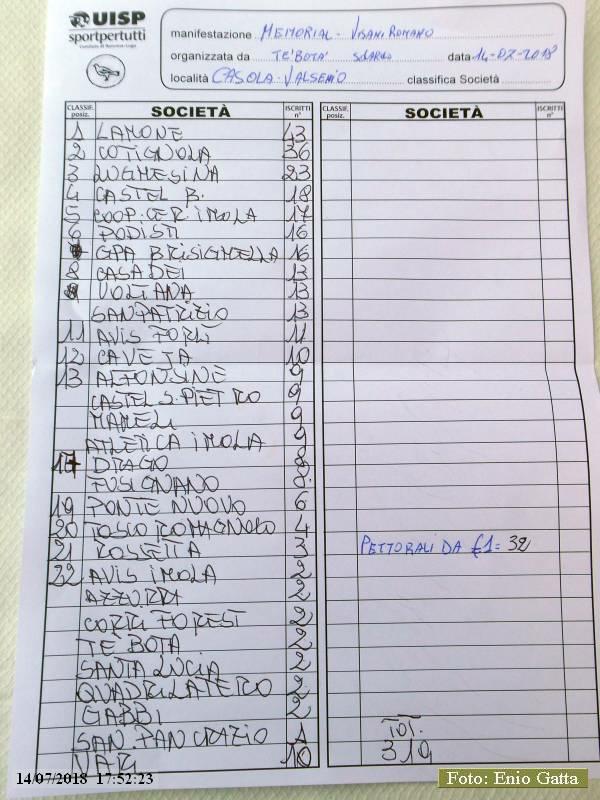 UISP
sportpertutti
manifestazione MEMORIAL - VISANI ROMANO
organizzata da TE'BOTA' data 14-07-2018
località CASOLA-VALSENIO classifica Società
CLASSIF. posiz. SOCIETÀ ISCRITTI n° CLASSIF. posiz. SOCIETÀ ISCRITTI n°
1 LAMONE 43
2 COTIGNOLA 36
3 LUGHESINA 23
4 CASTEL B. 18
5 COOP. CER. IMOLA 17
6 PODISTI 16
GPA BRISIGHELLA 16
8 CASADEI 13
VOLTANA 13
SAN PATRIZIO 13
11 AVIS FORLÌ 11
12 CAVEJA 10
13 ALFONSINE 9
CASTEL S. PIETRO 9
MAMELI 9
ATLETICA IMOLA 9
17 DRAGO 8
FUSIGNANO 8
19 PONTE NUOVO 6
20 TOSCO ROMAGNOLO 4
21 ROSSETTA 3 PETTORALI DA €1= 32
22 AVIS IMOLA 2
AZZURRA 2
CORRI FOREST 2
TE BOTA 2
SANTA LUCIA 2
QUADRILATERO 2
GABBI 2
SAN PANCRAZIO 1 TOT.
VARI 10 319
14/07/2018 17:52:23
Foto: Enio Gatta